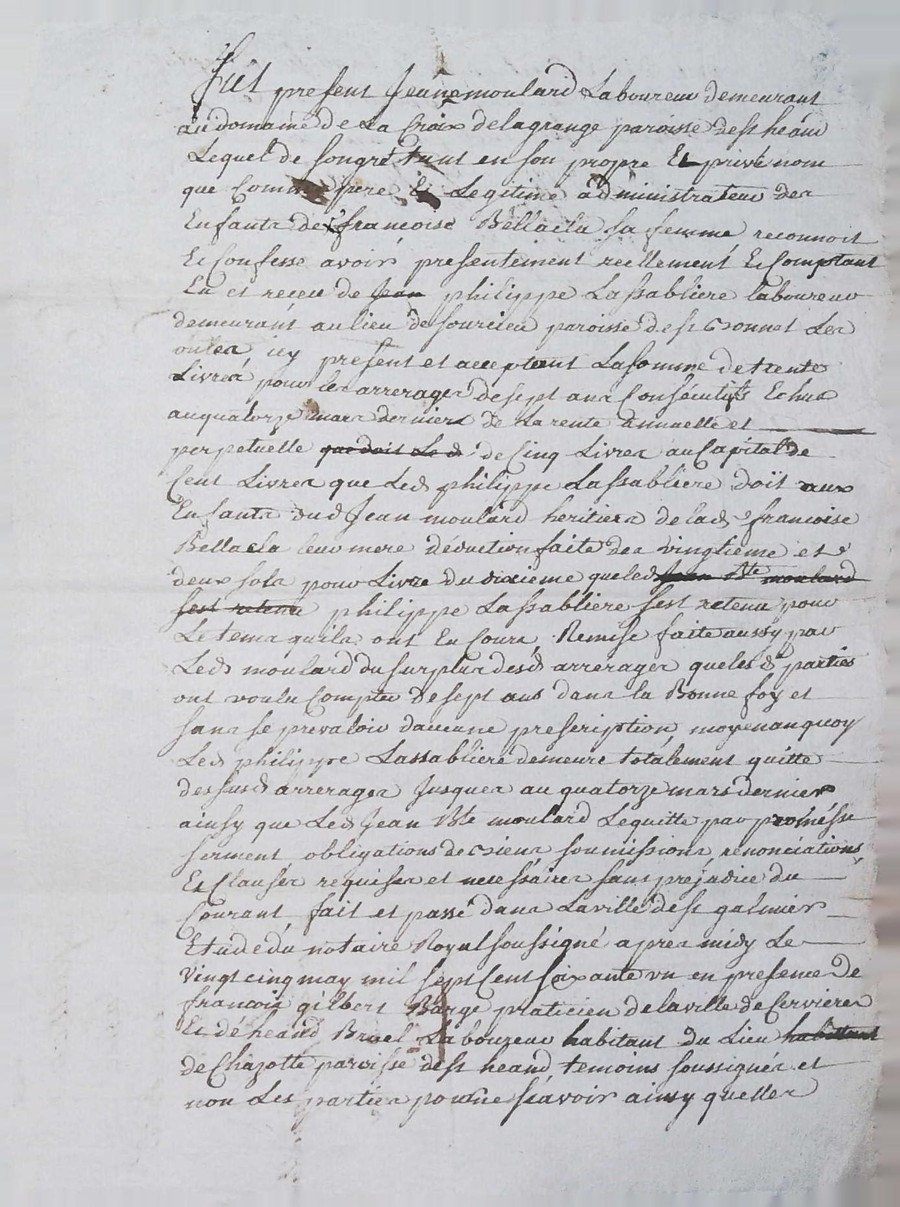 Fut present Jean moulard Laboureur demeurant
au domaine de La Croix de lagrange paroisse de st heand
Lequel de son gré tant en son propre Et privé nom
que Comme pere Et Legitime administrateur des
Enfants de françoise Bellacla sa femme reconnoit
Et Confesse avoir presentement reellement Et Comptant
Eu et receu de Jean philippe Lassabliere laboureur
demeurant au lieu de souricieu paroisse de st Bonnet Les
oules, icy present et acceptant La somme de trente
Livres pour les arrerages de sept ans Consécutifs Echus
au quatorze mars dernier de La rente annuelle et
perpetuelle que doit Le d. de Cinq Livres au Capital de
Cent Livres que Led philippe Lassabliere doit aux
Enfants dud Jean moulard heritiers de lad. françoise
Bellacla leur mere déduction faite des vingtieme et
deux sols pour Livre du dixieme que led Jean Bte moulard
s'est retenu philippe Lassabliere s'est retenu pour
Le tems qu'ils ont Eu Cours. Remise faite aussy par
Led moulard du surplus desd arrerages que les d. parties
ont voulu Compter de sept ans dans la Bonne foy et
sans se prevaloir d'aucune prescription, moyenan quoy
Led philippe Lassabliere demeure totalement quitte
des susd arrerages Jusques au quatorze mars dernier
ainsy que Led Jean Bte moulard Le quitte par promesse
serment obligations de biens soumissions, renonciations,
Et Clauses requises et necessaires sans prejudice du
Courant, fait et passé dans La ville de st galmier
Etude du notaire Royal soussigné apres midy Le
Vingt cinq may mil sept Cent soixante un en presence de
françois gilbert Barge praticien de la ville de Cervieres
Et de heand Bruel Laboureur habitant du Lieu habittant
de Chazotte paroisse de st heand temoins soussignés et
non Les parties pour ne sçavoir ainsy qu'elles